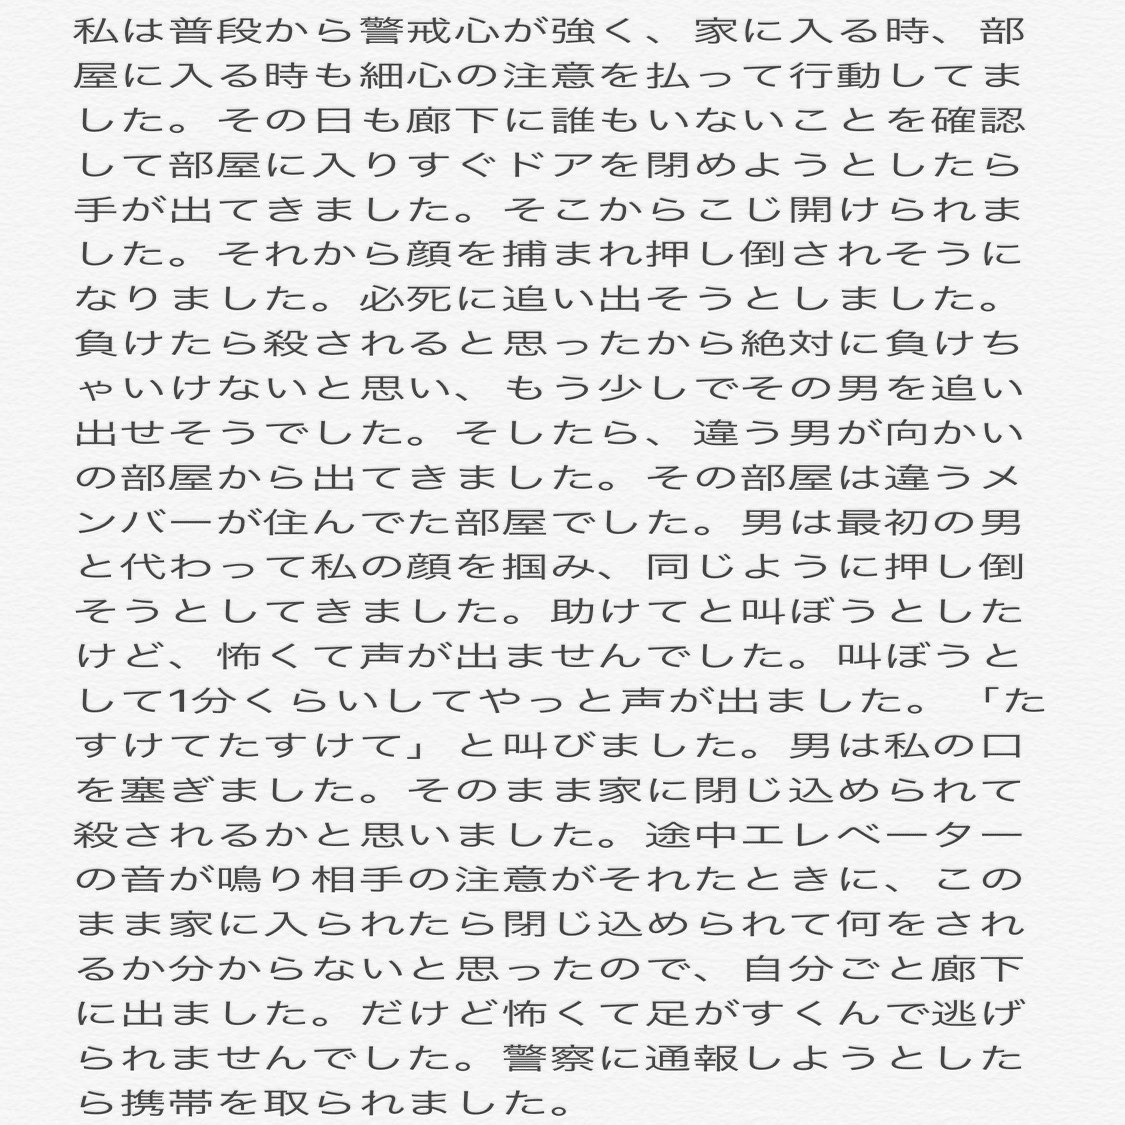 私は普段から警戒心が強く、家に入る時、部
屋に入る時も細心の注意を払って行動してま
した。その日も廊下に誰もいないことを確認
して部屋に入りすぐドアを閉めようとしたら
手が出てきました。そこからこじ開けられま
した。それから顔を捕まれ押し倒されそうに
なりました。必死に追い出そうとしました。
負けたら殺されると思ったから絶対に負けち
ゃいけないと思い、もう少しでその男を追い
出せそうでした。そしたら、違う男が向かい
の部屋から出てきました。その部屋は違うメ
ンバーが住んでた部屋でした。男は最初の男
と代わって私の顔を掴み、同じように押し倒
そうとしてきました。助けてと叫ぼうとした
けど、怖くて声が出ませんでした。叫ぼうと
して1分くらいしてやっと声が出ました。「た
すけてたすけて」と叫びました。男は私の口
を塞ぎました。そのまま家に閉じ込められて
殺されるかと思いました。途中エレベーター
の音が鳴り相手の注意がそれたときに、この
まま家に入られたら閉じ込められて何をされ
るか分からないと思ったので、自分ごと廊下
に出ました。だけど怖くて足がすくんで逃げ
られませんでした。警察に通報しようとした
ら携帯を取られました。